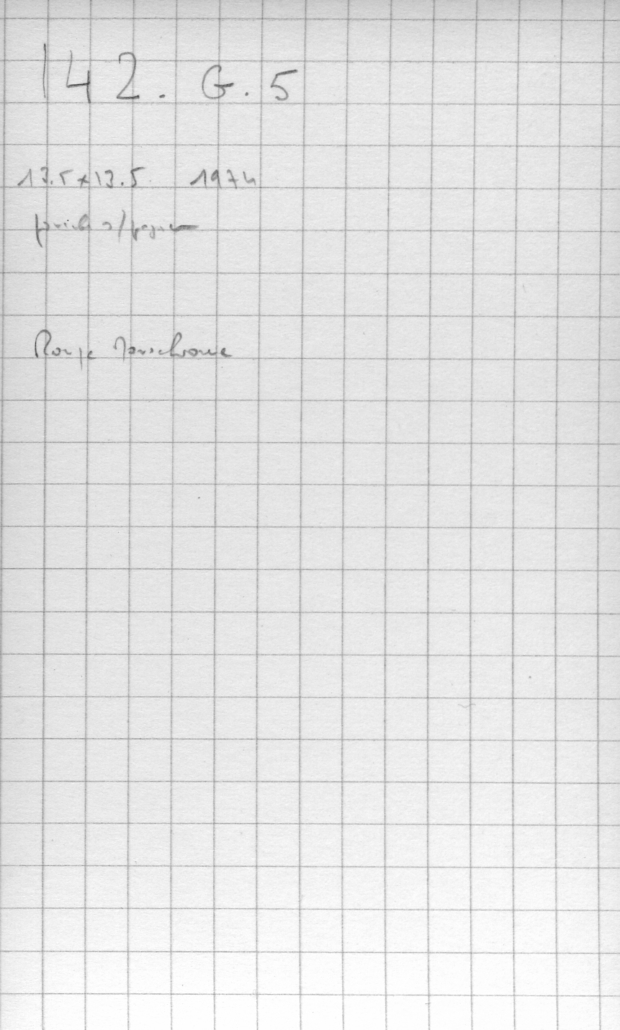 142. G. 5
13.5 x 13.5 1974
s/papier
Rouge